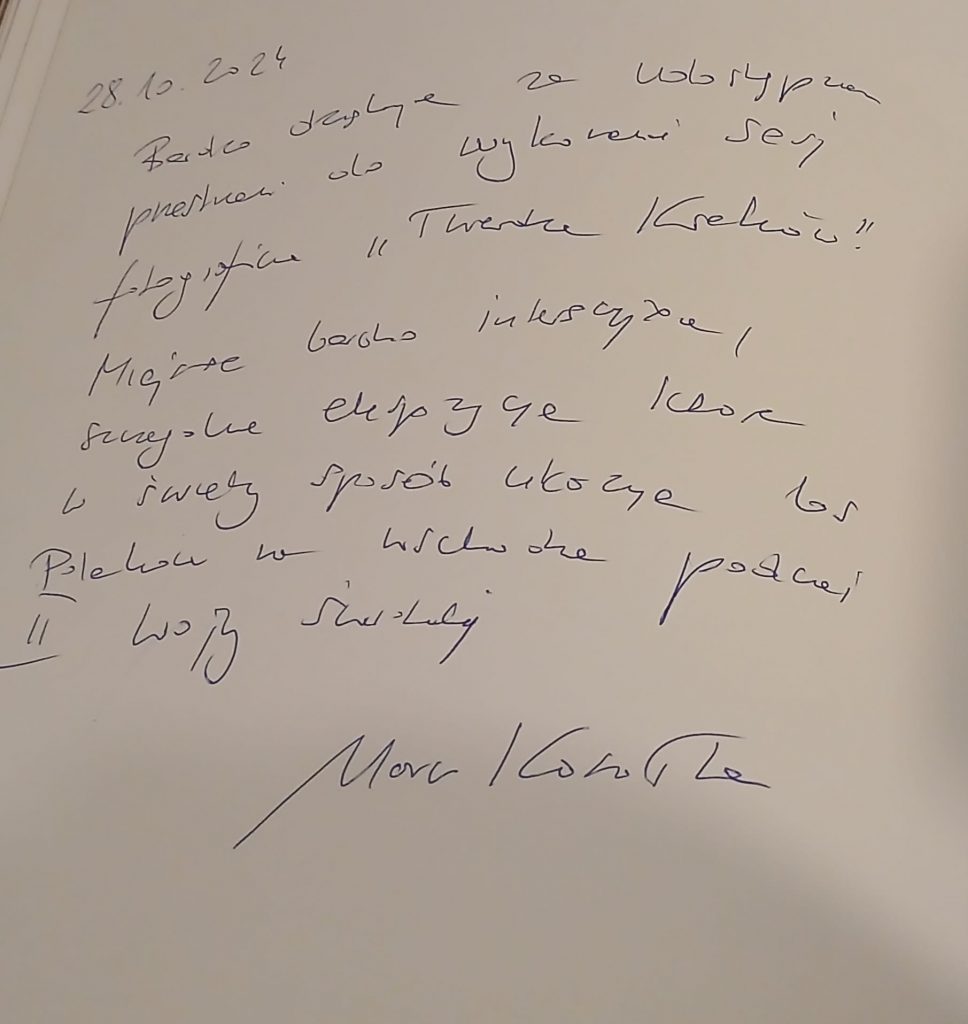 28.10.2024
Bardzo dziękuję za udostępnienie
przestrzeni do wykonania sesji
fotograficznej "Twierdza Kraków".
Miejsce bardzo interesujące,
szczególnie ekspozycja która
w świetny sposób ukazuje los
Polaków na wschodzie podczas
II wojny światowej